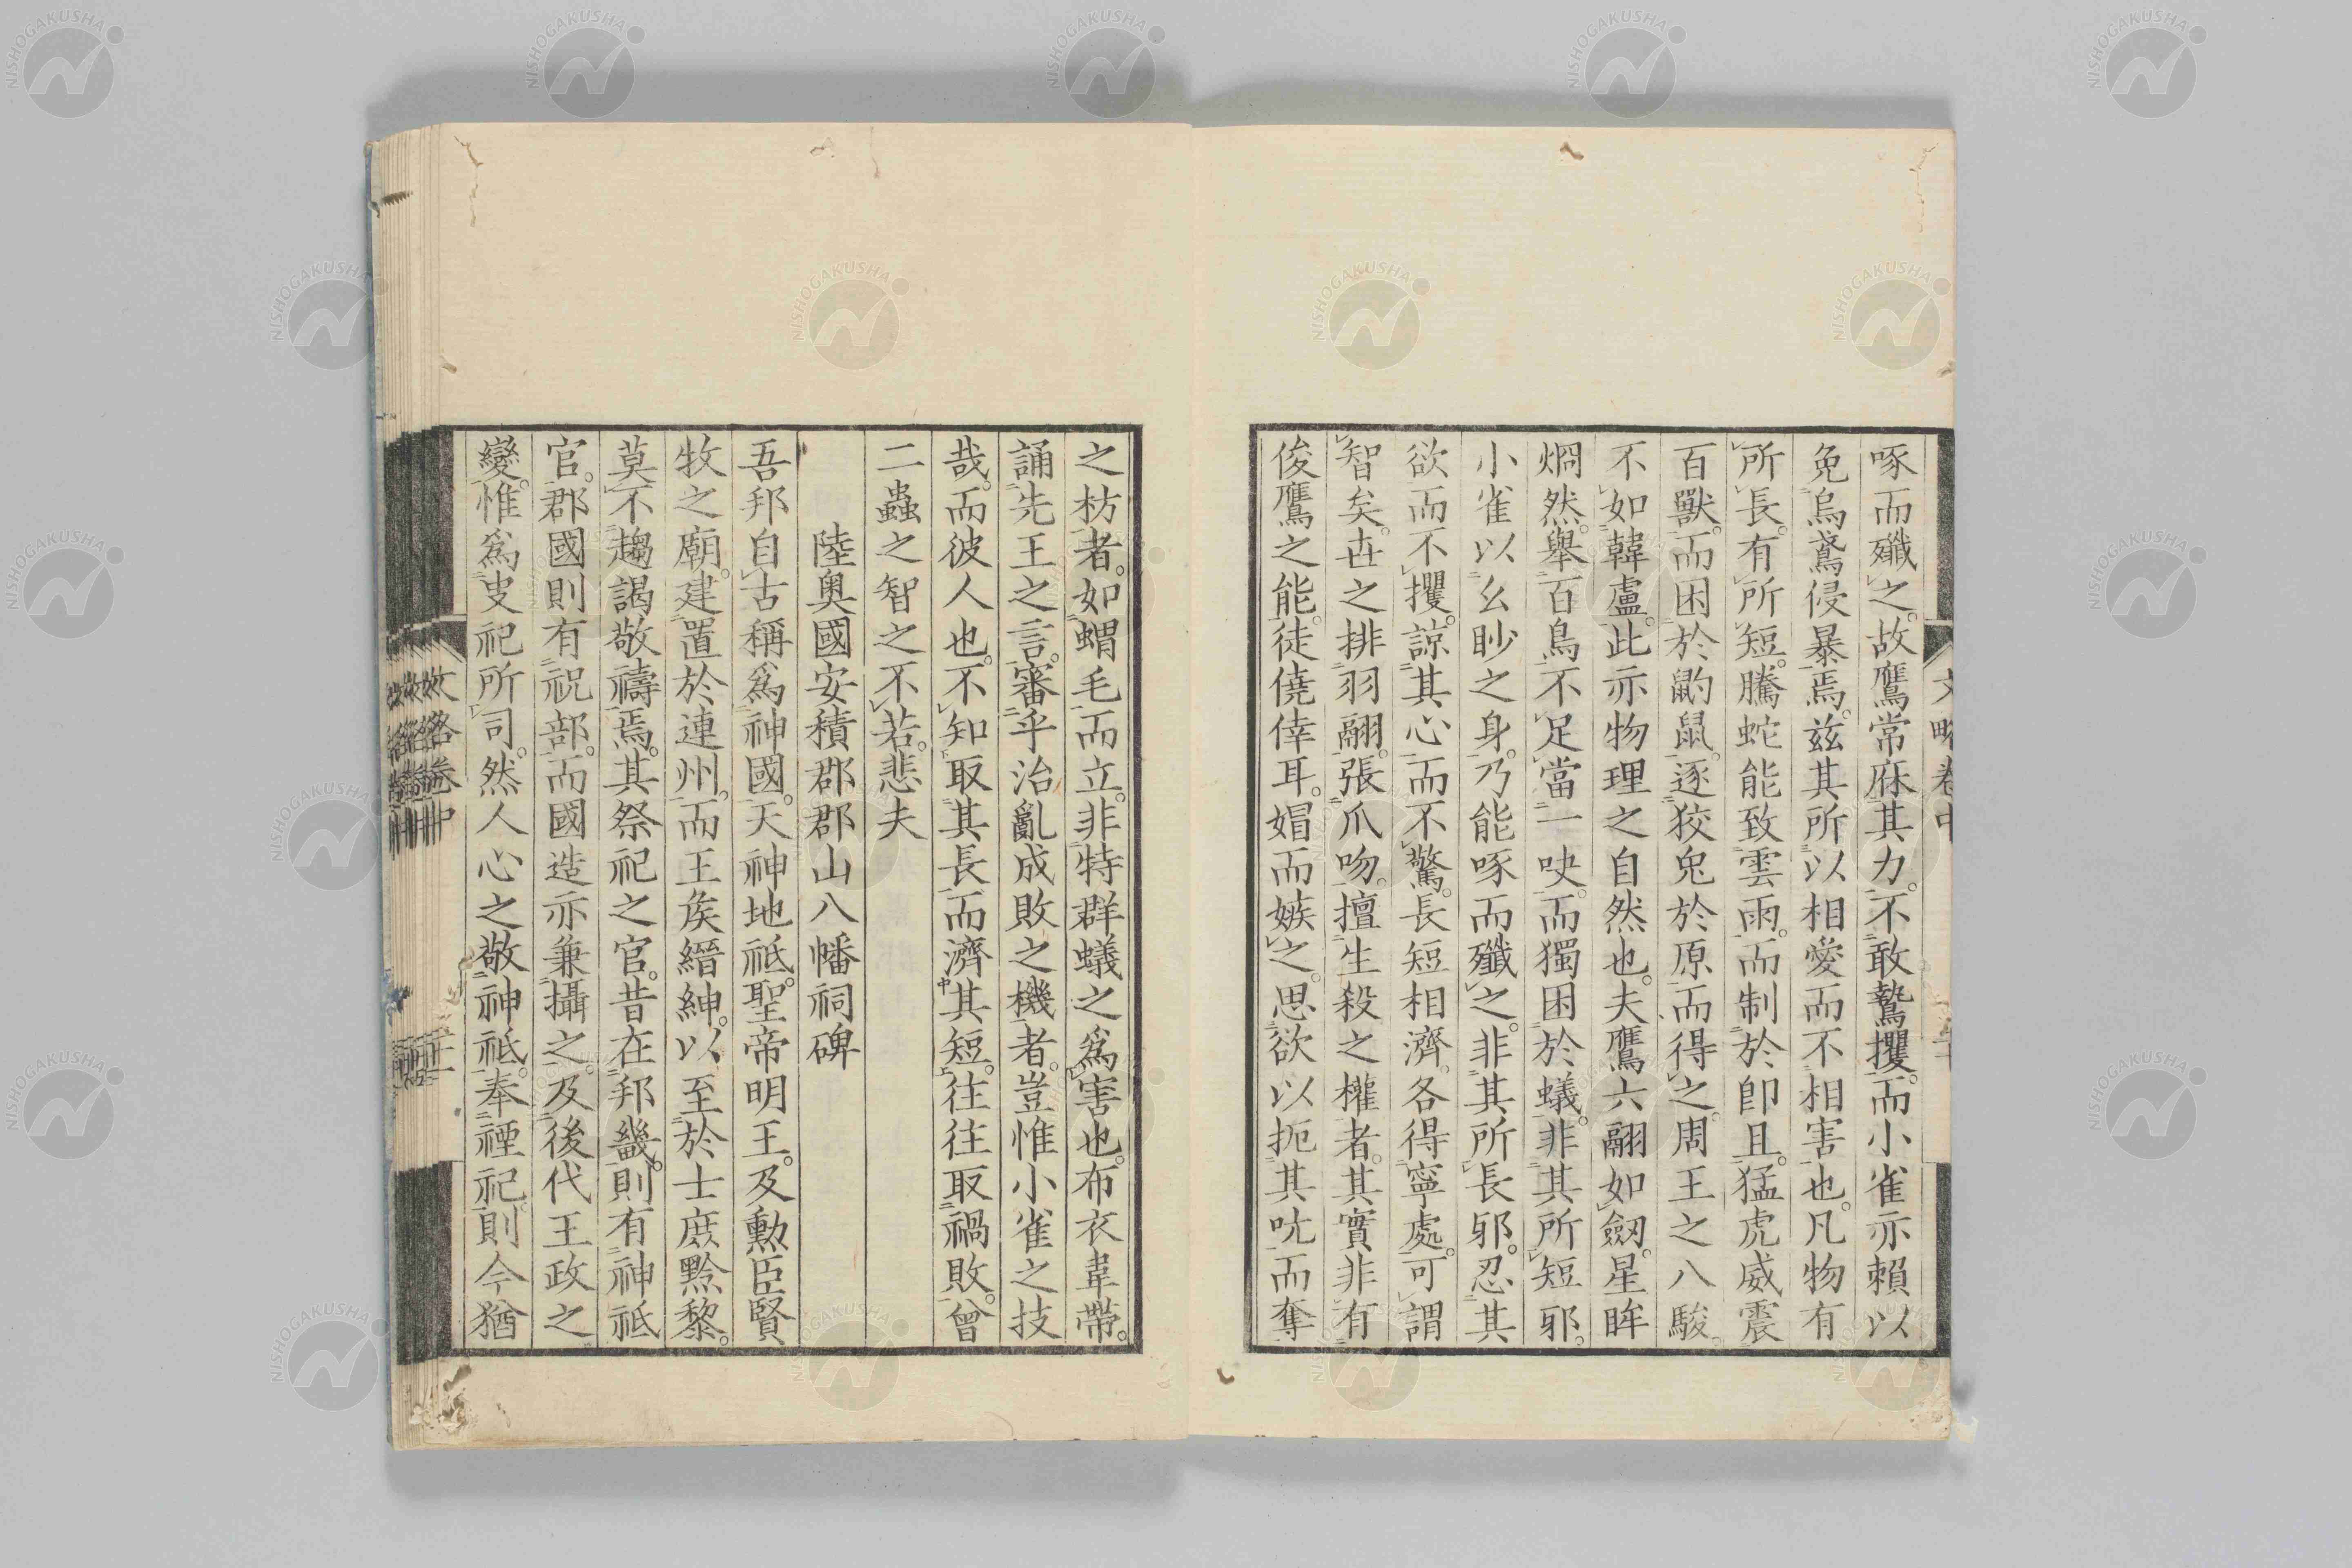 啄而殲之。故鷹常庥其力。不敢鷙攫。而小雀亦賴以
免烏鳶侵暴焉。茲其所以相愛而不相害也。凡物有
所長。有所短。騰蛇能致雲雨。而制於卽且。猛虎威震
百獸。而困於鼩鼠。逐狡兔於原。而得之。周王之八駿。
不如韓盧。此亦物理之自然也。夫鷹六翮如劒。星眸
烱然。舉百鳥不足當一吷。而獨困於蟻。非其所短邪。
小雀以幺眇之身。乃能啄而殲之。非其所長邪。忍其
欲而不攫。諒其心而不驚。長短相濟。各得寧處。可謂
智矣。世之排羽翮。張爪吻。擅生殺之權者。其實非有
俊鷹之能。徒僥倖耳。媢而嫉之。思欲以扼其吭而奪
之枋者。如蝟毛而立。非特群蟻之爲害也。布衣韋帶。
誦先王之言。審乎治亂成敗之機者。豈惟小雀之技
哉。而彼人也。不知取其長而濟其短。往往取禍敗。曾
二蟲之智之不若。悲夫
陸奧國安積郡郡山八幡祠碑
吾邦自古稱爲神國。天神地祇。聖帝明王。及勳臣賢
牧之廟。建置於連州。而王矦縉紳。以至於士庶黔黎。
莫不趨謁敬禱焉。其祭祀之官。昔在邦畿。則有神祇
官。郡國則有祝部。而國造亦兼攝之。及後代王政之
變。惟爲叓祀所司。然人心之敬神祇。奉禋祀。則今猶